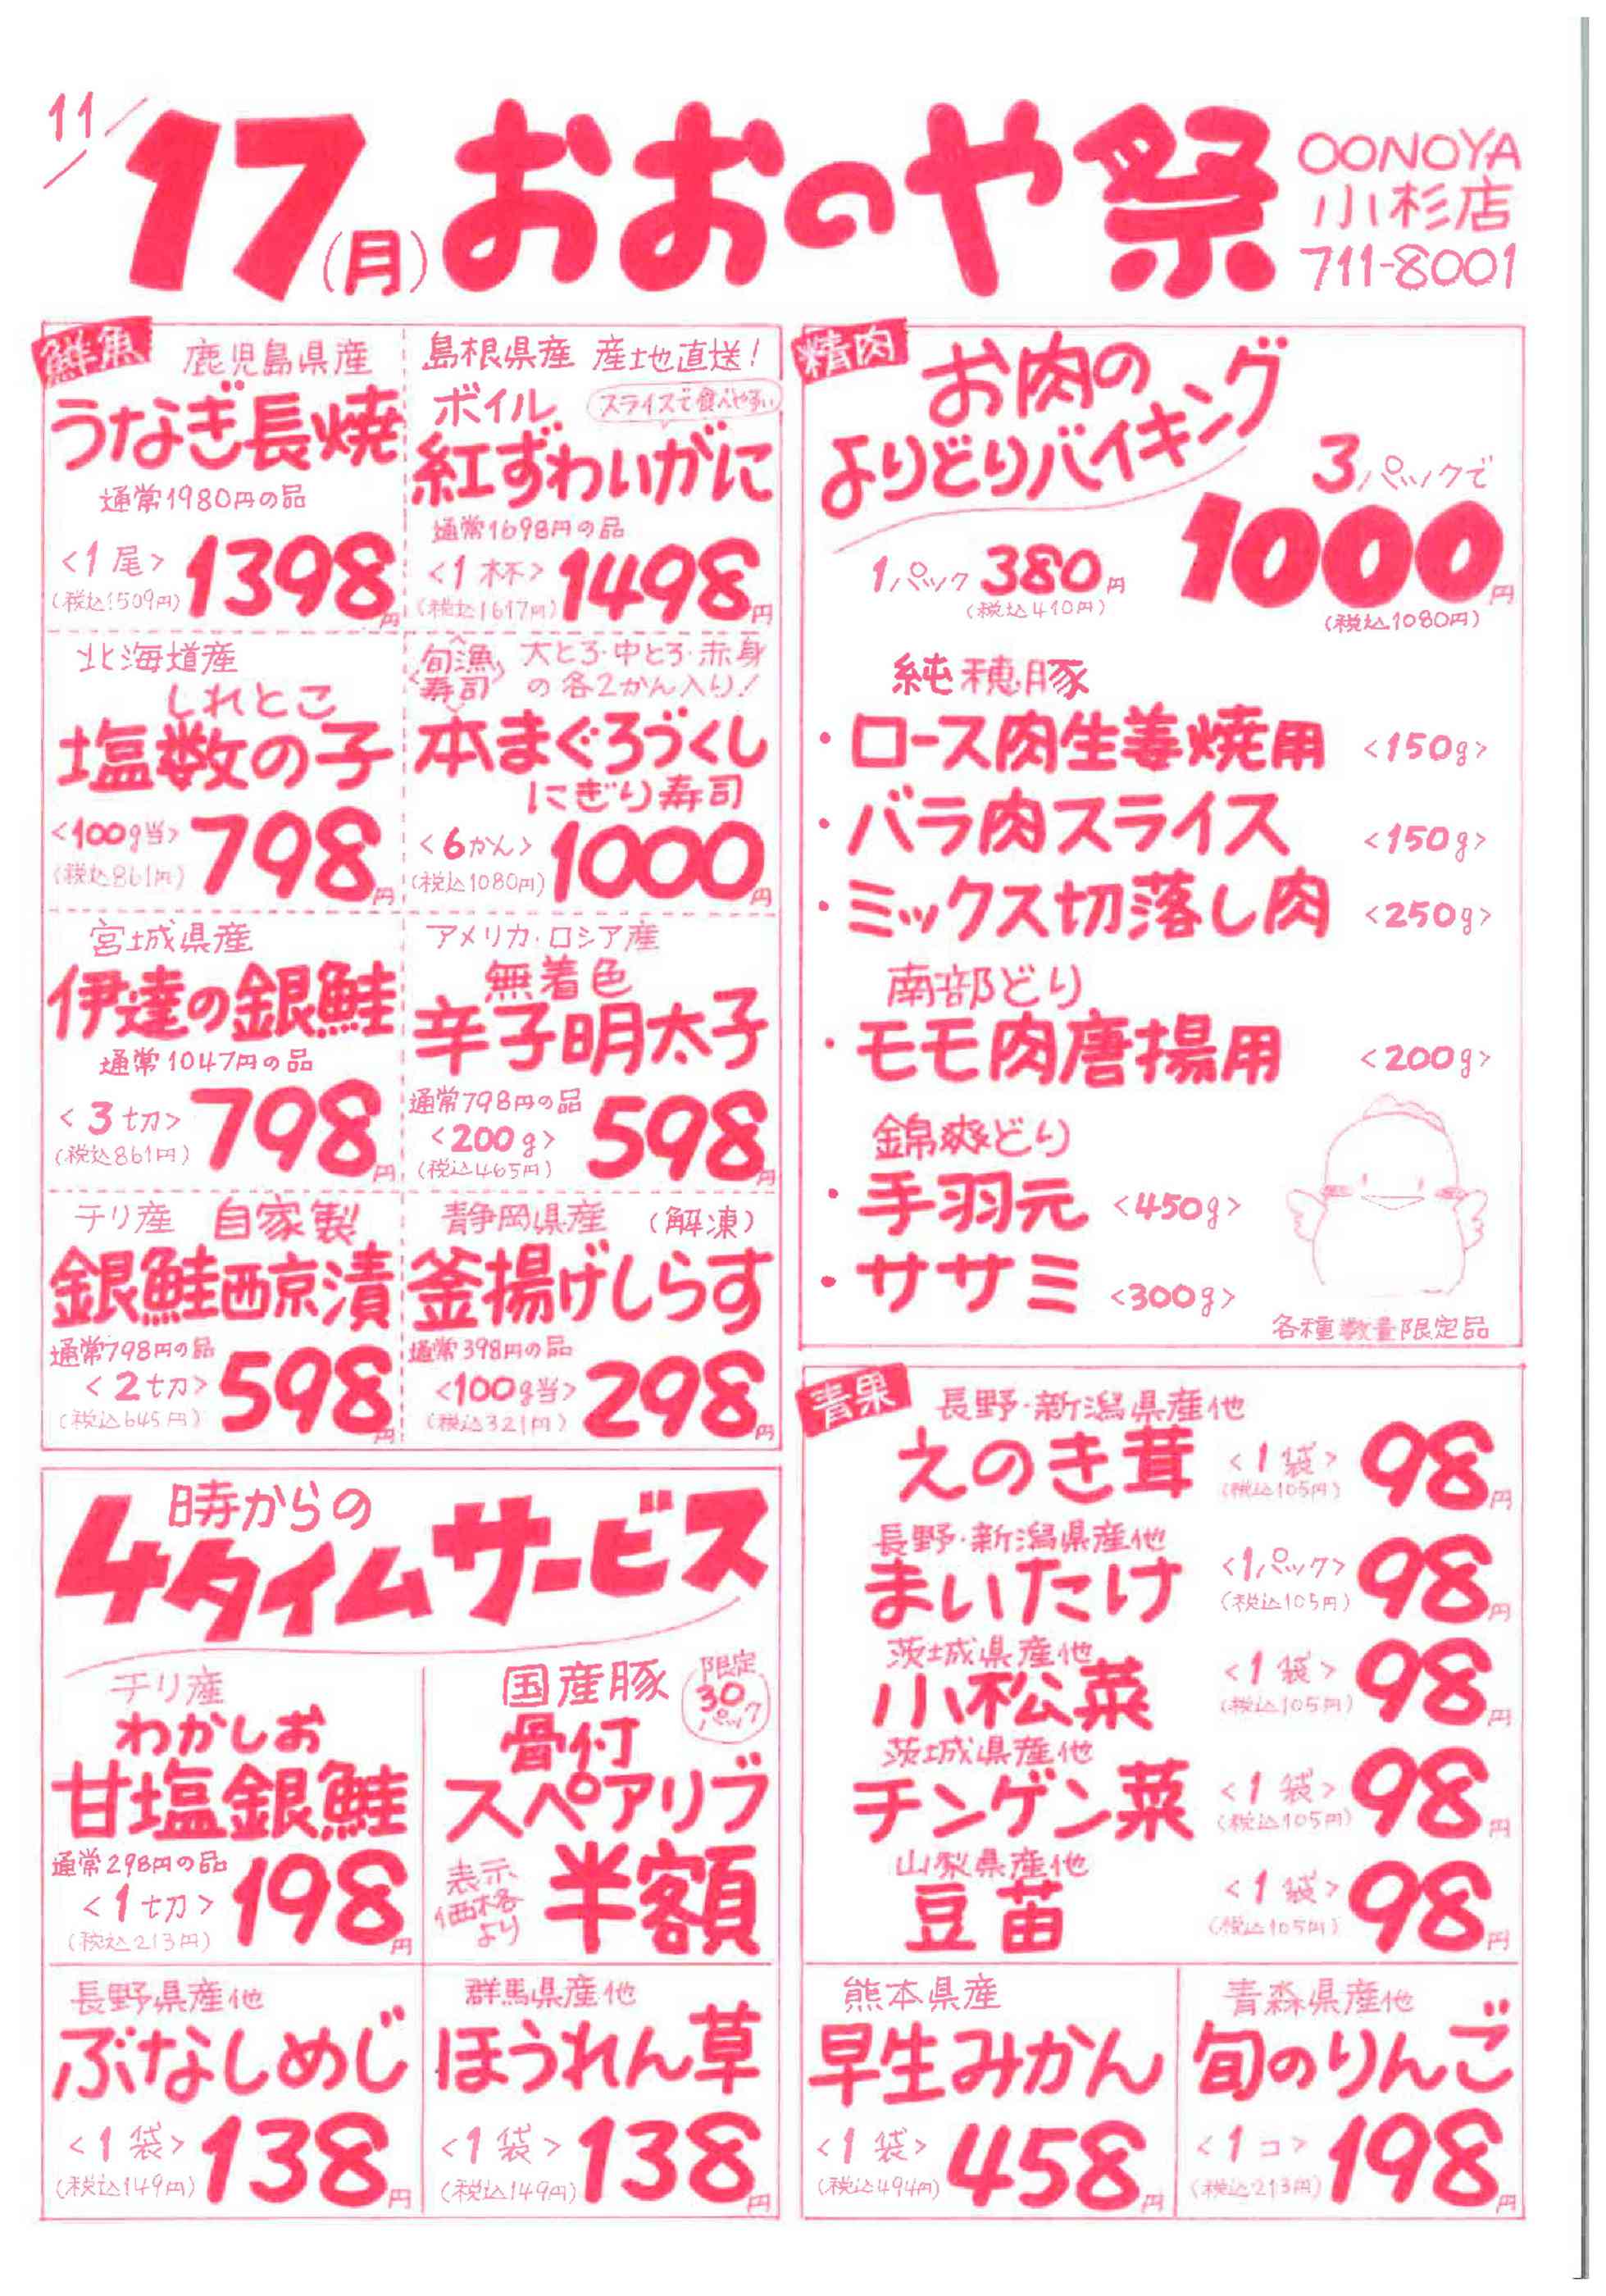 11/17(月)おおのや祭
OONOYA
小杉店
711-8001
鮮魚
鹿児島県産
うなぎ長焼
通常1980円の品
<1尾>
(税込1509円)
1398円
島根県産 産地直送!
ボイル
スライスで食べやすい
紅ずわいがに
通常1698円の品
<1杯>
(税込1617円)
1498円
北海道産
しれとこ
塩数の子
<100g当>
(税込861円)
798円
旬漁
寿司
大とろ・中とろ・赤身
の各2かん入り!
本まぐろづくし
にぎり寿司
<6かん>
(税込1080円)
1000円
宮城県産
伊達の銀鮭
通常1047円の品
<3切>
(税込861円)
798円
アメリカ・ロシア産
無着色
辛子明太子
通常798円の品
<200g>
(税込465円)
598円
チリ産 自家製
銀鮭西京漬
通常798円の品
<2切>
(税込645円)
598円
静岡県産 (解凍)
釜揚げしらす
通常398円の品
<100g当>
(税込321円)
298円
4時からの
タイムサービス
チリ産
わかしお
甘塩銀鮭
通常298円の品
<1切>
(税込213円)
198円
国産豚
限定
30
パック
骨付
スペアリブ
表示
価格
より
半額
長野県産他
ぶなしめじ
<1袋>
(税込149円)
138円
群馬県産他
ほうれん草
<1袋>
(税込149円)
138円
精肉
お肉の
よりどりバイキング
3パックで
1000円
(税込1080円)
1パック380円
(税込410円)
純穂豚
・ロース肉生姜焼用 <150g>
・バラ肉スライス <150g>
・ミックス切落し肉 <250g>
南部どり
・モモ肉唐揚用 <200g>
錦爽どり
・手羽元 <450g>
・ササミ <300g>
各種数量限定品
青果
長野・新潟県産他
えのき茸 <1袋> 98円
(税込105円)
長野・新潟県産他
まいたけ <1パック> 98円
(税込105円)
茨城県産他
小松菜 <1袋> 98円
(税込105円)
茨城県産他
チンゲン菜 <1袋> 98円
(税込105円)
山梨県産他
豆苗 <1袋> 98円
(税込105円)
熊本県産
早生みかん
<1袋>
(税込494円)
458円
青森県産他
旬のりんご
<1コ>
(税込213円)
198円